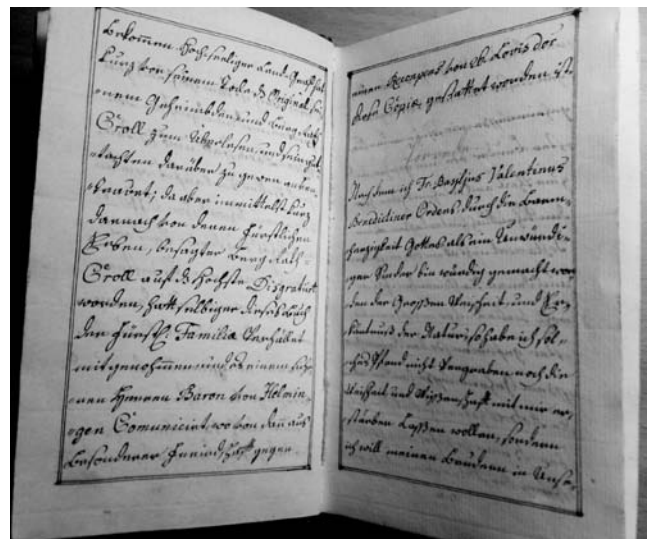 bekommen. Hochseeliger Land-Graf hat
kurz vor seinem Tode d. Original sei-
nem Geheimbden und Berg Rath
Croll zum Ubrlesen, und sein gut-
-achten darüber zu geben anver-
-trauet; da aber immittelst kurz
darnach von denen Fürstlichen
Erben, besagter Berg Rath
Croll auf d. höchste Disgratiirt
worden, hatt selbiger dieses Buch
der Fürstl. Familia Verhället
mitgenohmen und es einem
Herren Baron von
-gen Comuniciret, wovon dan aus
besonderer Freundschafft gegen
einen Recompens von Louis dor
diese Copie, gestattet worden ist.
Nachdem ich Fr. Basylius Valentinus
Benedictiner Ordens durch die Barm-
herzigkeit Gottes als ein Unwürdi-
ger Sünder bin würdig gemacht wor-
den der Grossen Weisheit und Er-
käntnus der Natur; so habe ich sol-
ches Pfand nicht Vergraben noch die
Weisheit und Wissenschafft mit mir er-
-sterben lassen wollen, sondern
ich will meinen Brudern in Unse-